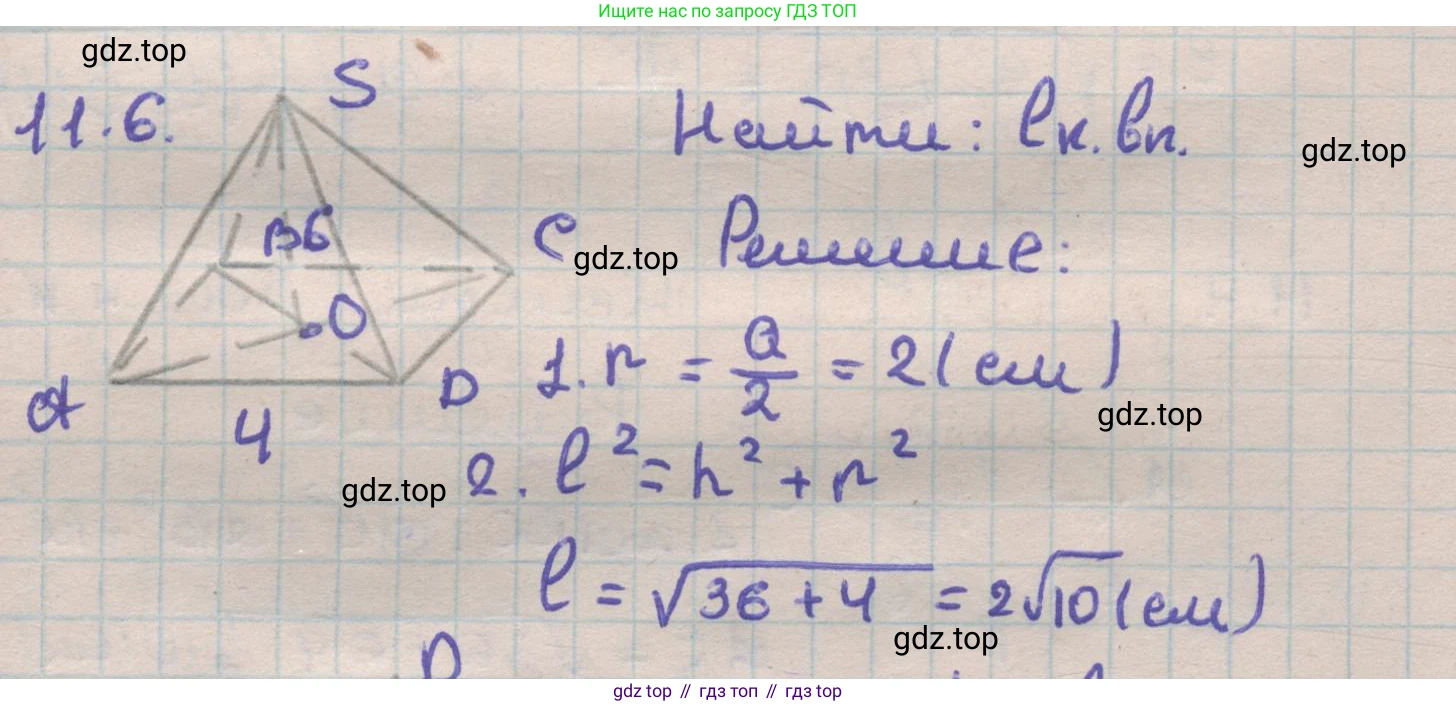 Ищите нас по запросу ГДЗ ТОП
gdz.top
11.6.
S
Найти: lк.вп.
gdz.top
B 6
C
gdz.top
Решение:
O
1. r = a/2 = 2 (см)
A
D
4
gdz.top
gdz.top
2. l² = h² + r²
l = √36 + 4 = 2√10 (см)
gdz.top
D
gdz top // гдз топ // gdz top